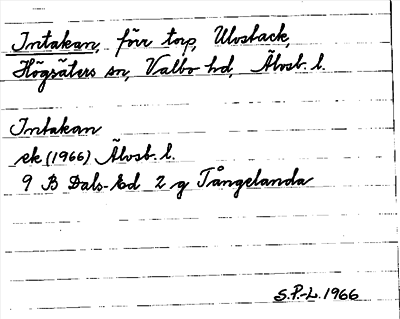 Intakan, förr torp, Ulvstack,
Högsäters sn, Valbo hd, Älvsb. l.
Intakan
ek (1966) Älvsb. l.
9 B Dals-Ed 2 g Tångelanda
S.P.-L. 1966